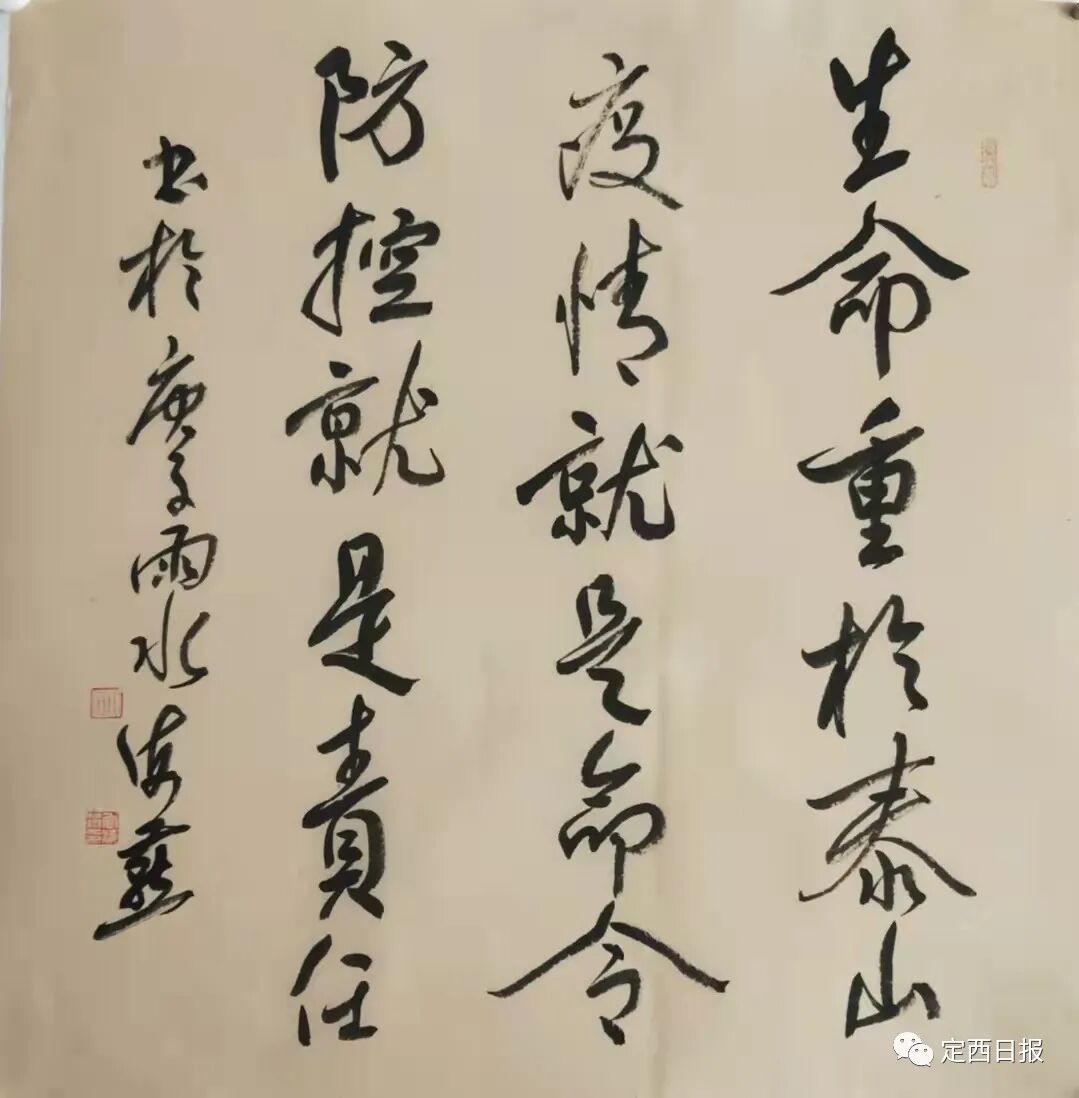 生命重於泰山
疫情就是命令
防控就是責任
书於庚子雨水海燕
定西日报